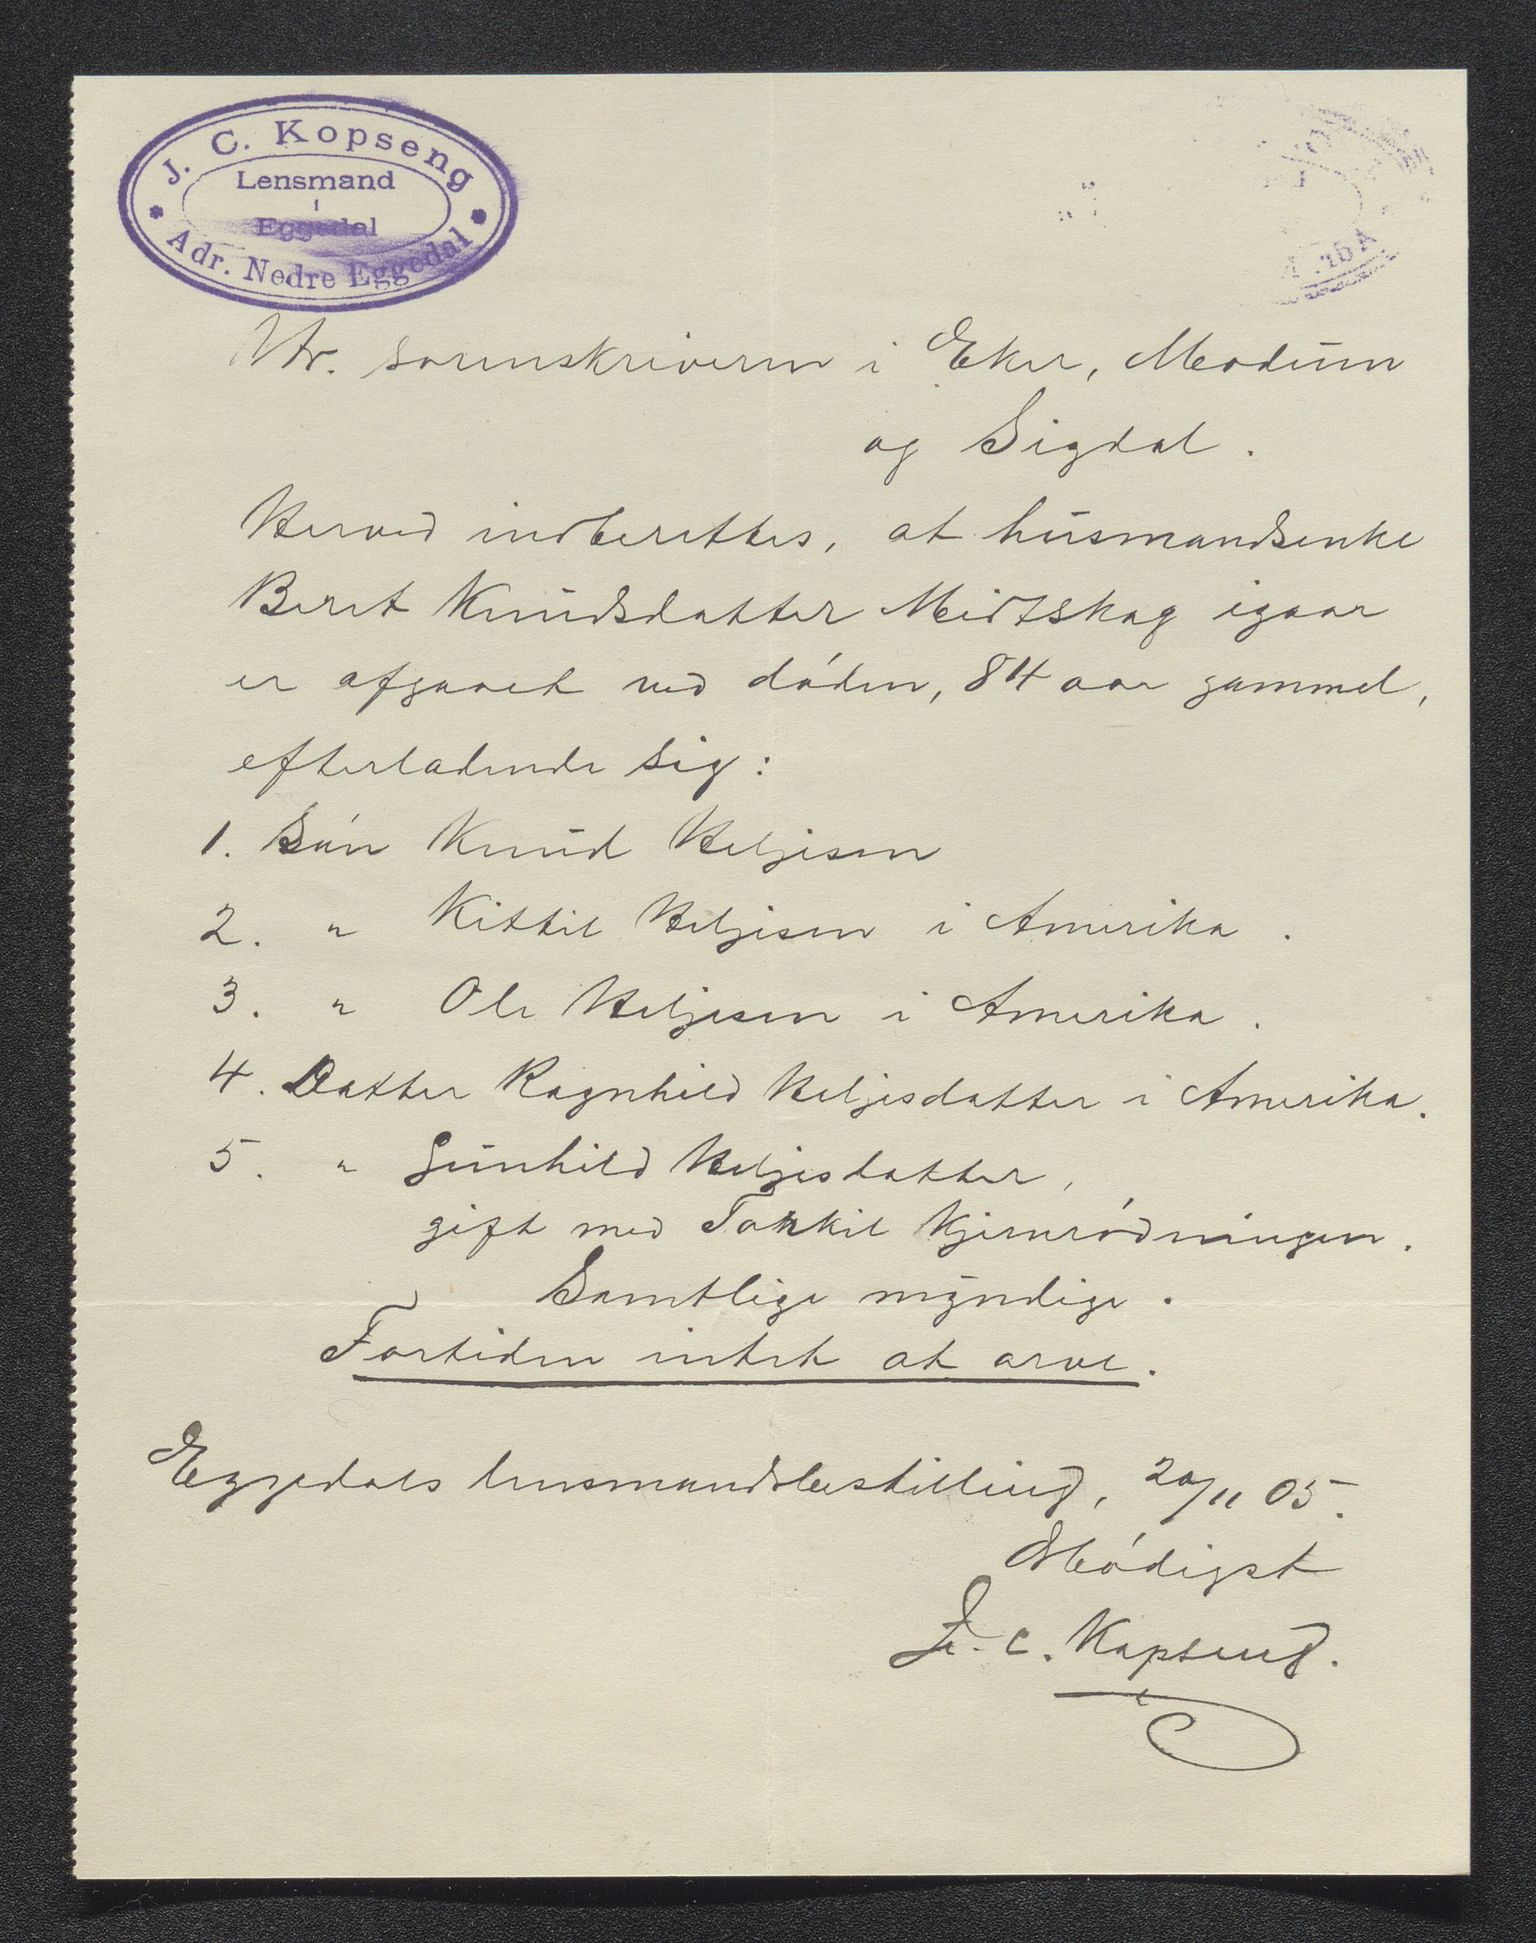 J. C. Kopseng
Lensmand
i
Eggedal
Adr. Nedre Eggedal
Hr. sorenskriveren i Eker, Modum
og Sigdal.
Herved indberettes, at husmandsenke
Beret Knudsdatter Midtskog igaar
er afgaaet ved døden, 84 aar gammel,
efterladende sig:
1. Søn Knud Helgesen
2. " Kittil Helgesen i Amerika.
3. " Ole Helgesen i Amerika.
4. Datter Ragnhild Helgesdatter i Amerika.
5. " Gunhild Helgesdatter,
gift med Torkil Kjernrødningen.
Samtlige myndige.
Fortiden intet at arve.
Eggedals lensmandsbestilling, 20/11 05.
Ødigst
J. C. Kopseng.